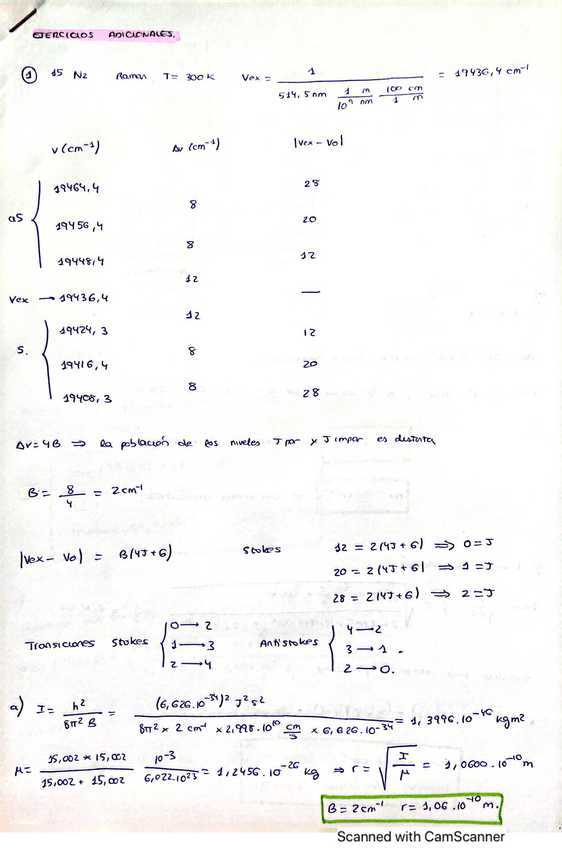 EJERCICIOS ADICIONALES.
① 15 N2 Raman T= 300 K Vex = 1 / (514,5 nm 1 m / 10⁹ nm 100 cm / 1 m) = 19436,4 cm⁻¹
v (cm⁻¹) Δv (cm⁻¹) |Vex - Vo|
19464,4 28
8
aS 19456,4 20
8
19448,4 12
12
Vex → 19436,4 —
12
19424,3 12
S. 8
19416,4 20
8
19408,3 28
Δv = 4B ⇒ la población de los niveles J par y J impar es distinta
B = 8/4 = 2 cm⁻¹
|Vex - Vo| = B(4J+6) Stokes 12 = 2(4J+6) ⇒ 0=J
20 = 2(4J+6) ⇒ 1=J
28 = 2(4J+6) ⇒ 2=J
Transiciones Stokes { 0→2 Antistokes { 4→2
1→3 3→1.
2→4 2→0.
a) I = h² / 8π² B = (6,626.10⁻³⁴)² J² s² / (8π² × 2 cm⁻¹ × 2,998.10¹⁰ cm/s × 6,626.10⁻³⁴) = 1,3996.10⁻⁴⁶ kg m²
μ = 15,002 × 15,002 / 15,002 + 15,002 10⁻³ / 6,022.10²³ = 1,2456.10⁻²⁶ kg ⇒ r = √(I/μ) = 1,0600.10⁻¹⁰ m
B = 2cm⁻¹ r = 1,06.10⁻¹⁰ m.
Scanned with CamScanner